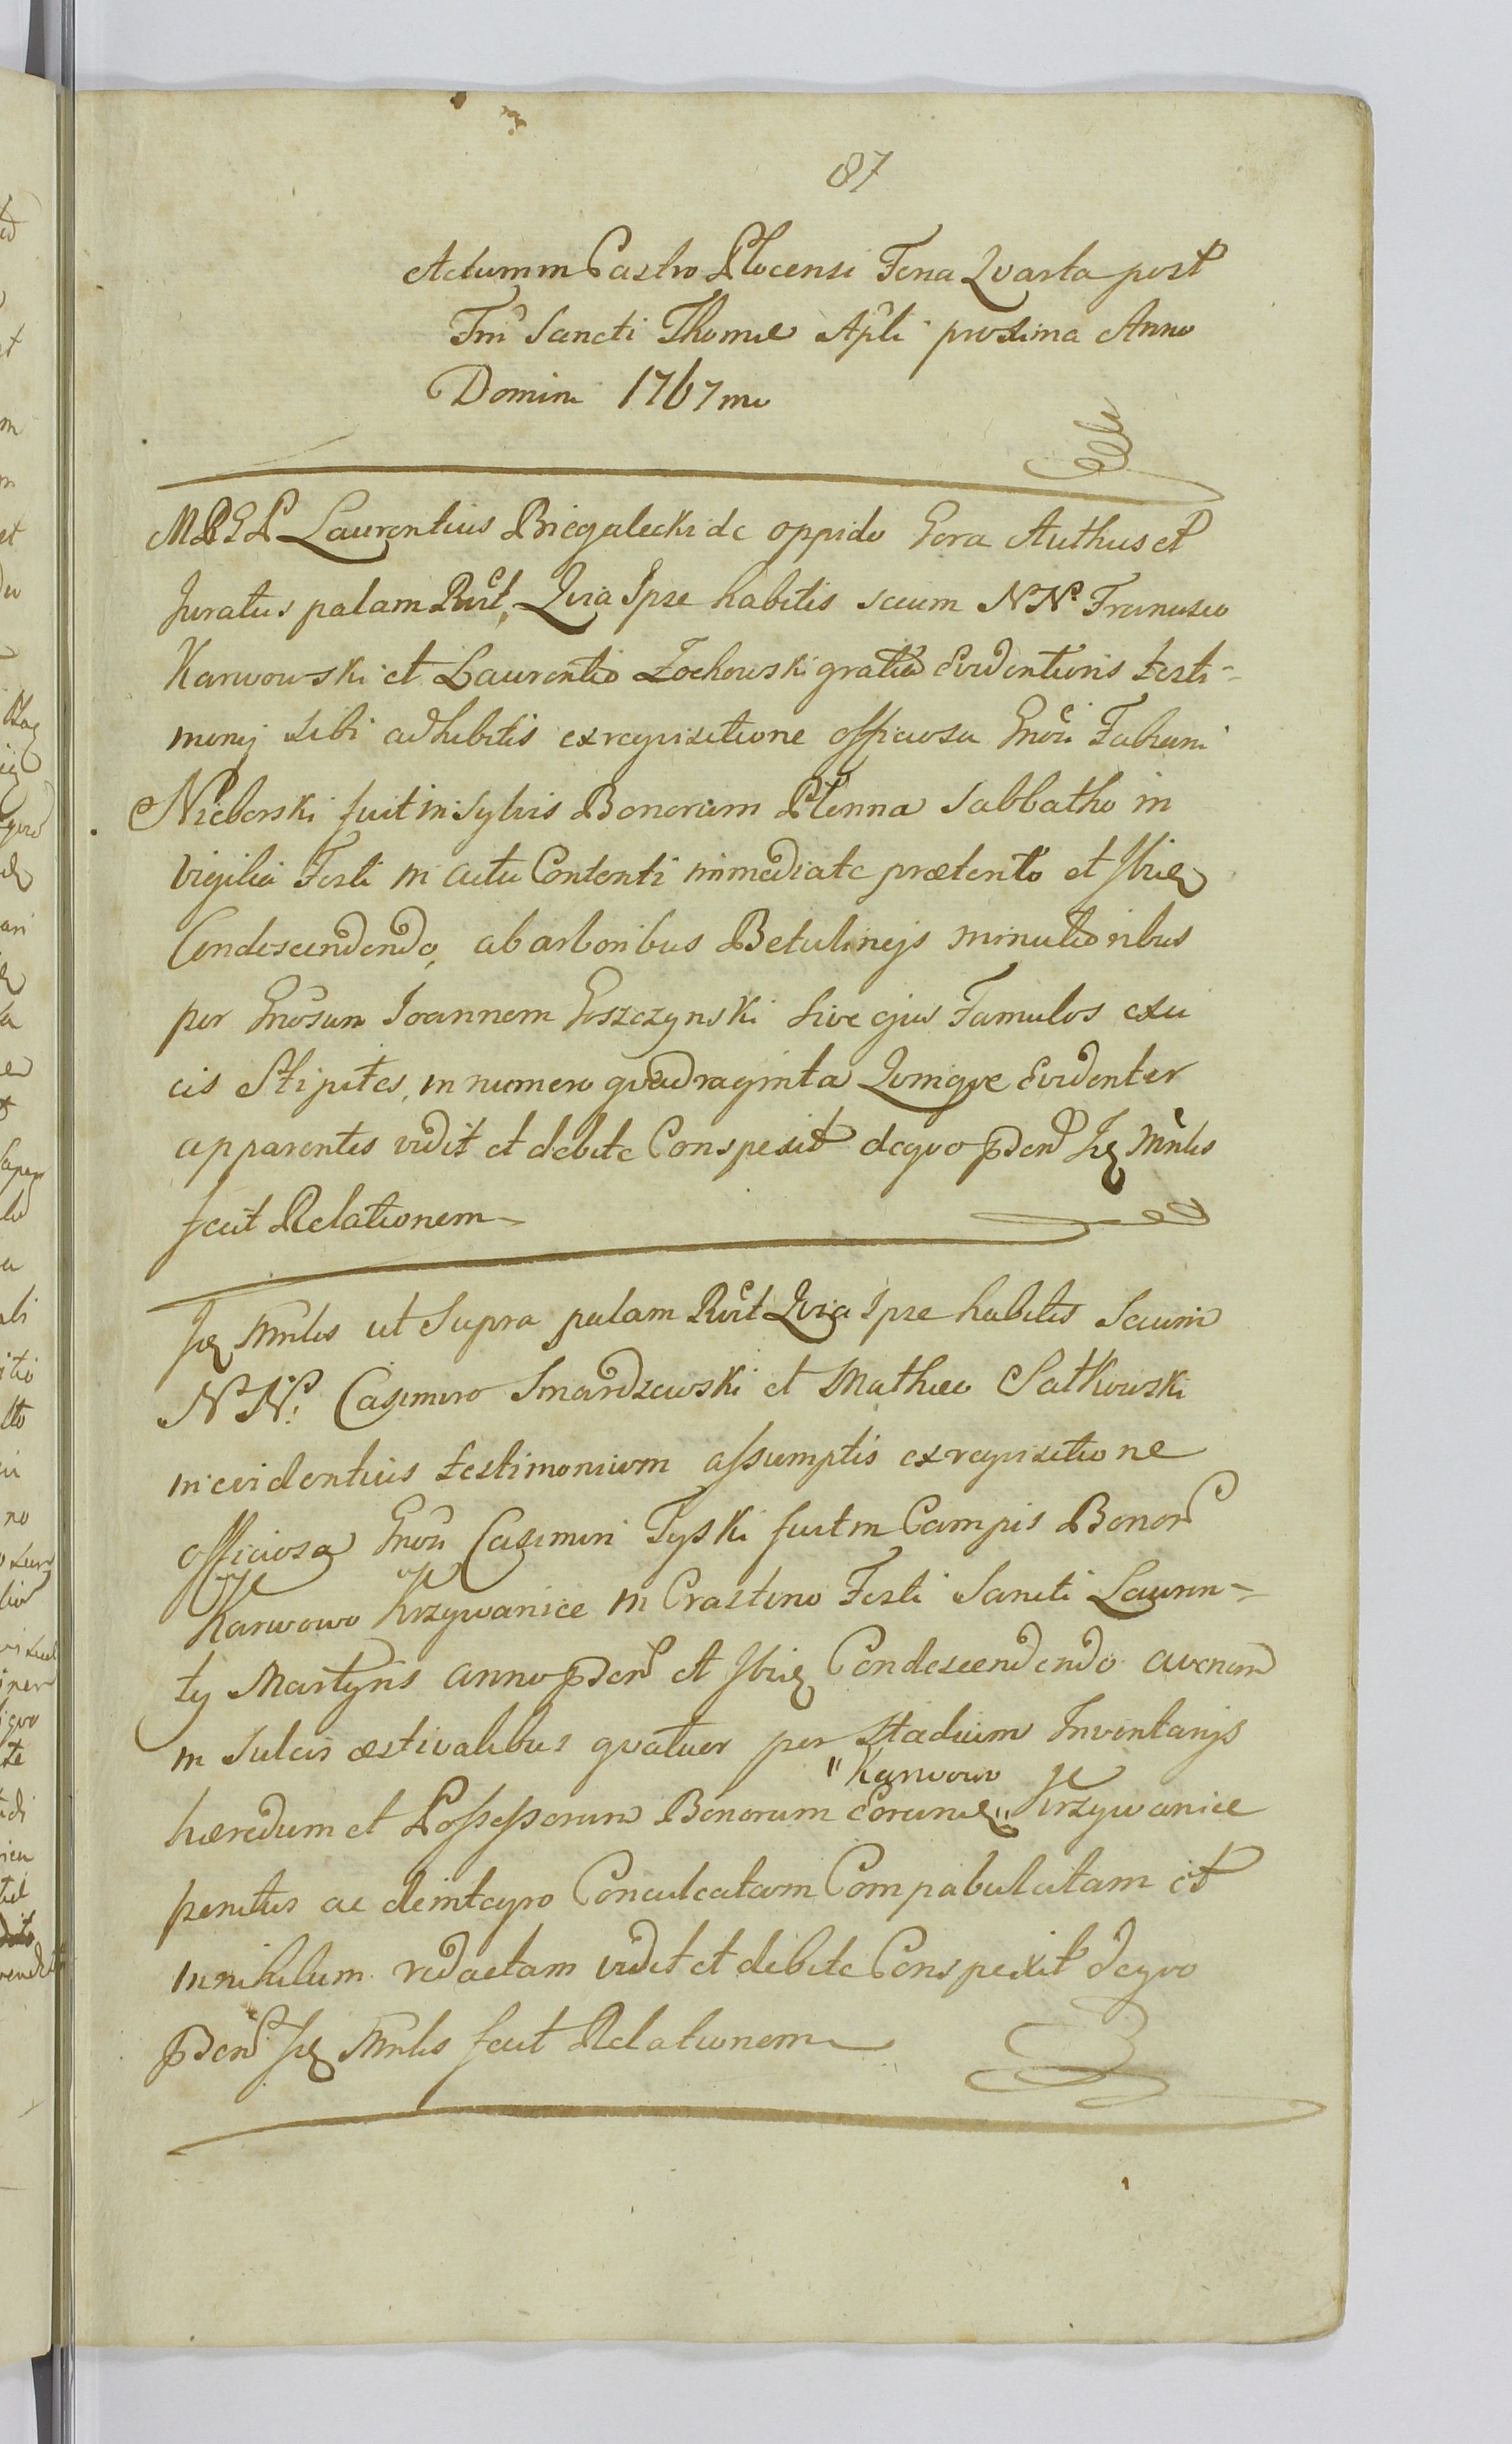 87
Actum in Castro Plocensi Feria Qvarta post
Ftm Sancti Thomæ Apli proxima Anno
Domini 1767mo
MRGL Laurentius Biegalecki de oppido Gora Authus et
Juratus palam Rcvt, Qvia Ipse habitis secum NN. Francisco
Karwowski et Laurentio Zochowski gratiâ Evidentioris testi-
monij sibi adhibitis ex reqvisitione officiosa Gnosi Fabiani
Nieborski fuit in Sylvis Bonorum Plonna Sabbatho in
Vigilia Festi in actu Contenti immediate præterito et Ibiq
Condescendendo, ab arboribus Betulineis minutioribus
per Gnosum Joannem Goszczynski Sive ejus Famulos exci
cis Stipites, in numero qvadraginta Qvinqve Evidenter
apparentes vidit et debite Conspexit de qvo pden Iq Mnlis
fecit Relationem
Iq Mnlis ut Supra palam Rcvt Qvia Ipse habitis Secum
NN. Casimiro Smardzewski et Mathæo Satkowski
in evidentius testimonium assumptis ex reqvisitione
officiosa Gnosi Casimiri Tyski fuit in Campis Bonor
Karwowo Krzywanice in Crastino Festi Sancti Lauren-
tij Martyris anno pden et Ibiq Condescendendo avenam
in Sulcis æstivalibus qvatuor per Stadium Inventarijs
hæredum et Possessorum Bonorum Eorumq " Krzywanice
" Karwowo
penitus ac de integro Conculcatam Compabulatam et
in nihilum redactam vidit et debite Conspexit de qvo
pden Iq Mnlis fecit Relationem